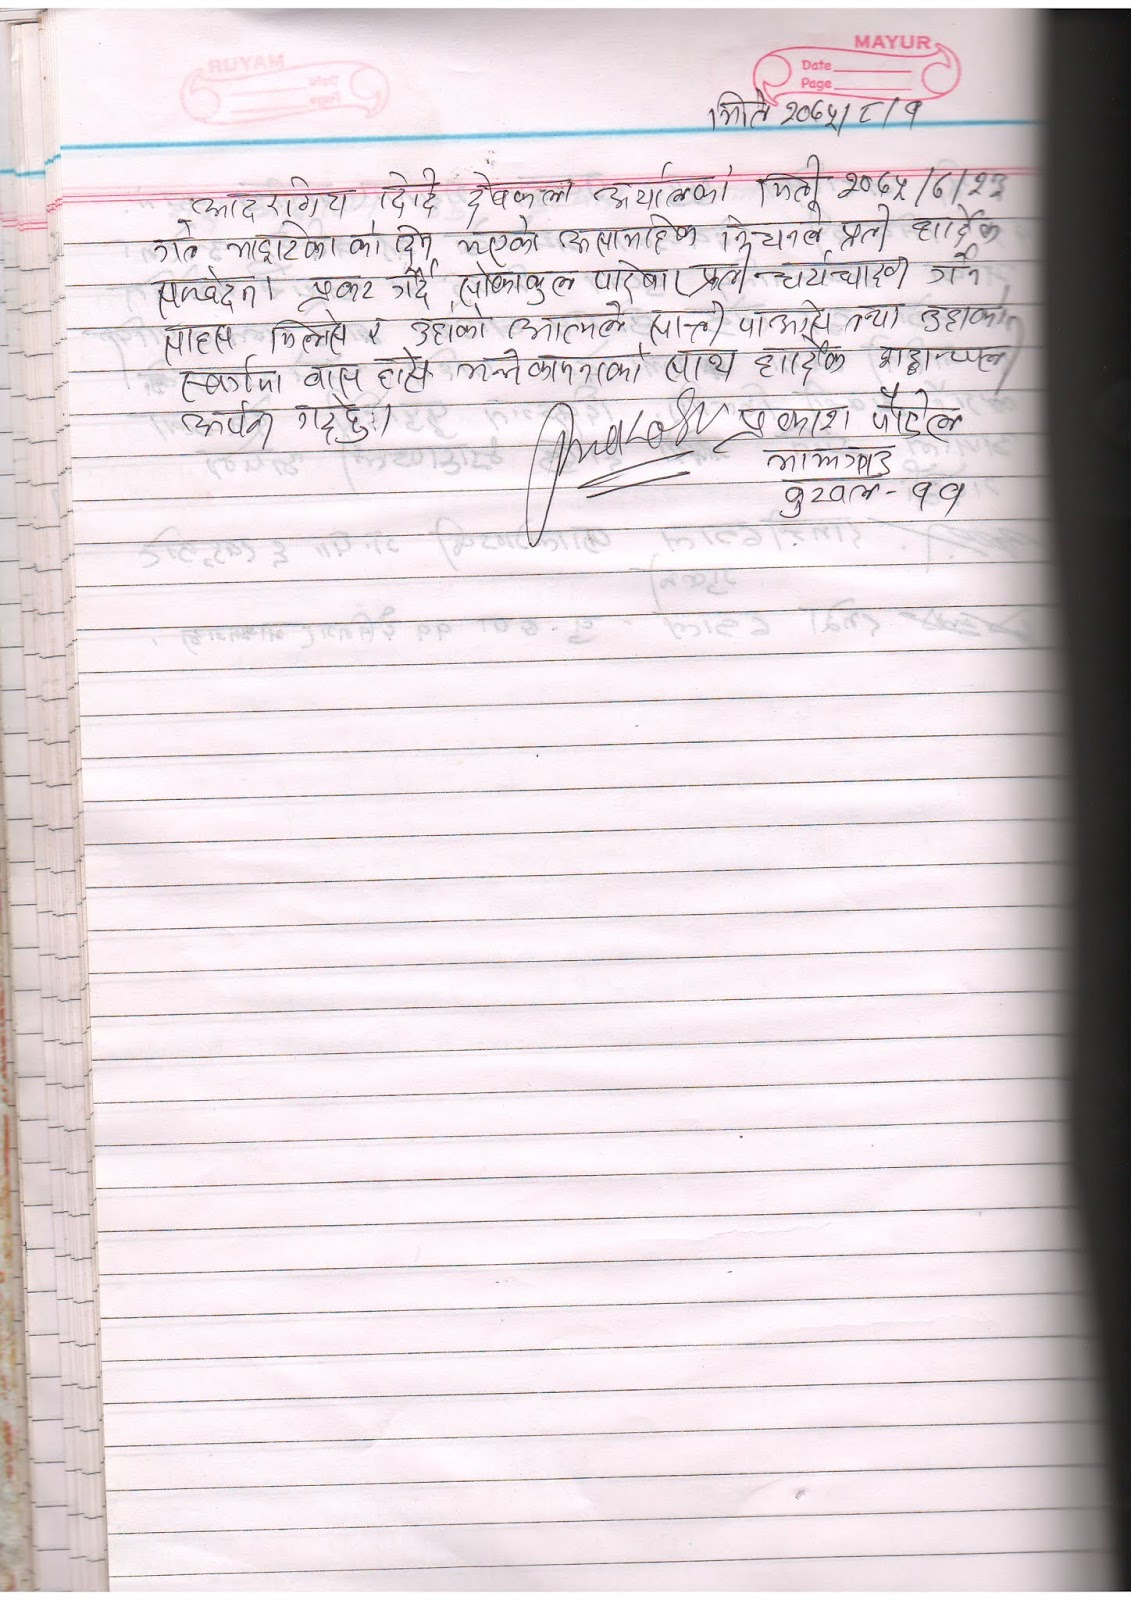 MAYUR
Date
Page
मिति २०६५/८/१
आदरणिय दिदि देवकला अर्यालको मिती २०६५/७/२३
गते भाइटिका को दिन भएको असामाहिक निधनले प्रती हार्दिक
सम्वेदना प्रकट गर्दै सोकाकुल परिवार प्रती धैर्यधारण गर्ने
साहस मिलोस र उहाँको आत्माले सान्ती पाओस तथा उहाको
स्वर्गमा वास होस भन्ने कामनाको साथ हार्दिक श्रद्धान्जली
अर्पन गर्दछु।
प्रकाश पौडेल
बुटवल - ११